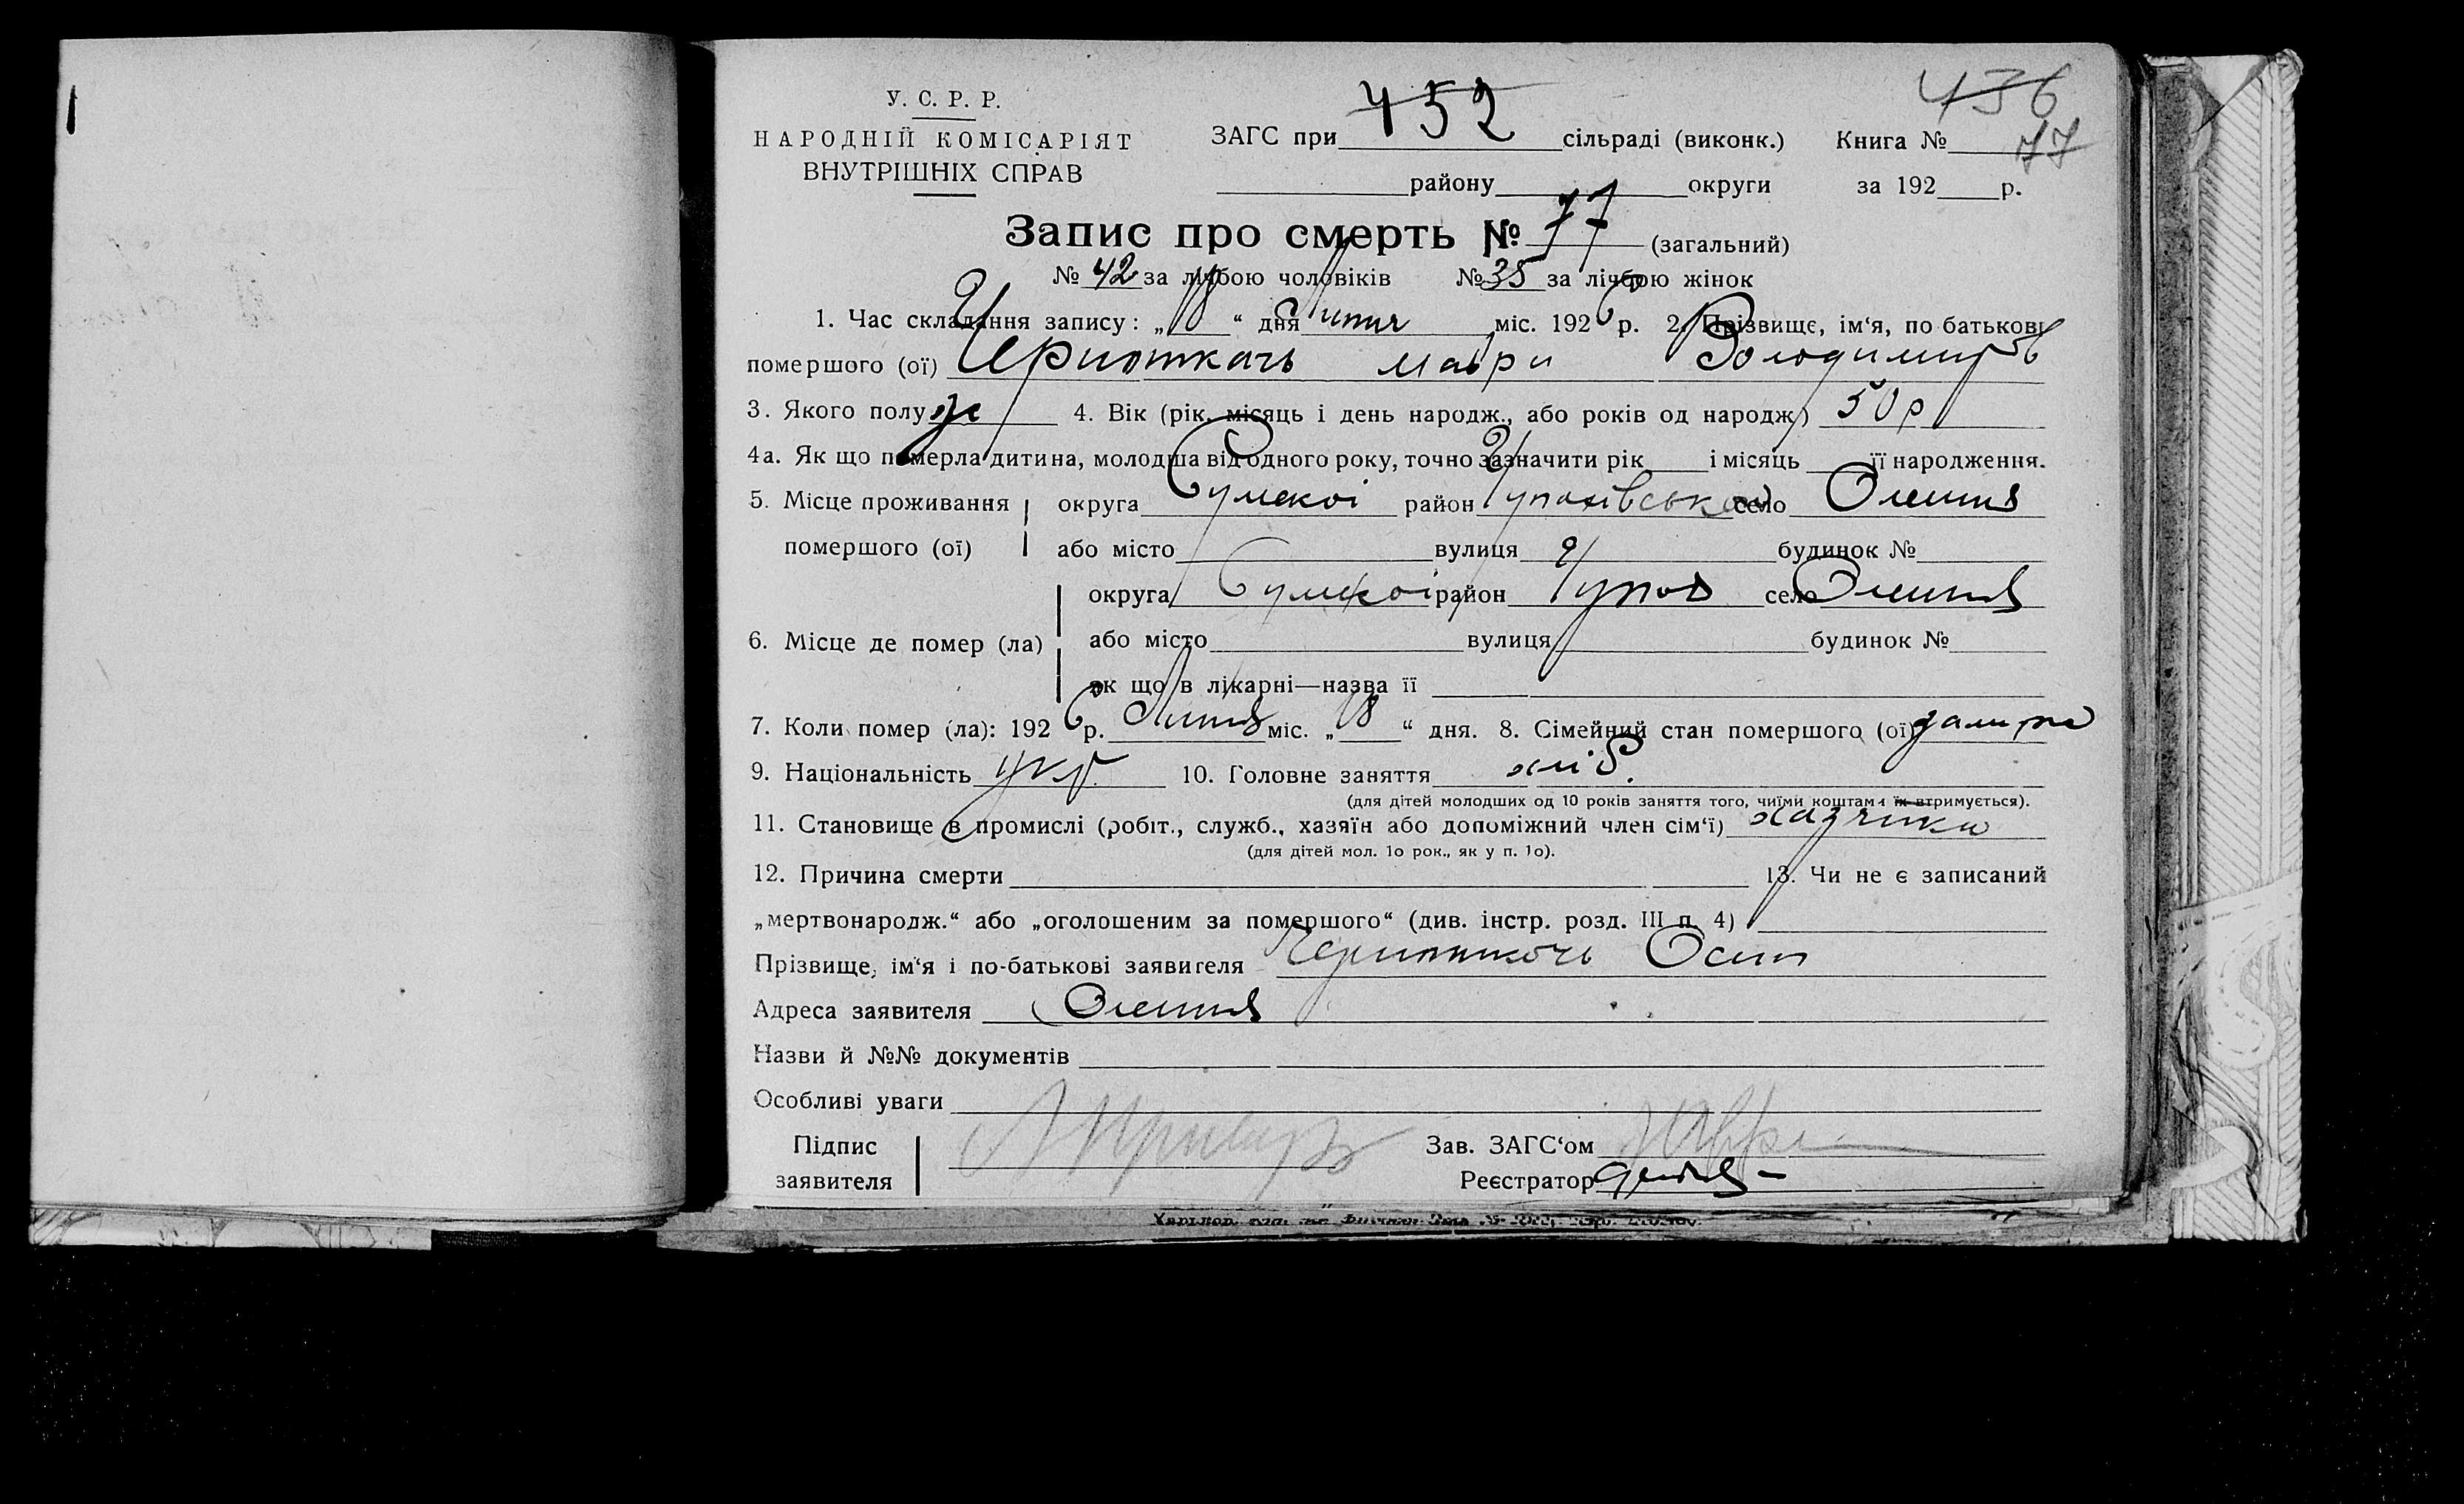 436
У. С. Р. Р.
НАРОДНІЙ КОМІСАРІЯТ
ВНУТРІШНІХ СПРАВ
ЗАГС при 452 сільраді (виконк.) Книга № 77
району округи за 192 р.
Запис про смерть № 77 (загальний)
№ 42 за лічбою чоловіків № 35 за лічбою жінок
1. Час складання запису: „18“ дня Липня міс. 1926 р. 2. Прізвище, ім‘я, по батькові
помершого (ої) Черноткачь Маври Володимиров
3. Якого полу ж 4. Вік (рік, місяць і день народж., або років од народж.) 50 р
4а. Як що померла дитина, молодша від одного року, точно зазначити рік і місяць її народження.
5. Місце проживання округа Сумскої район село Олешня
помершого (ої) або місто вулиця будинок №
округа Сумської район Чупов село Олешня
6. Місце де помер (ла) або місто вулиця будинок №
як що в лікарні—назва її
7. Коли помер (ла): 1926 р. Липня міс. „18“ дня. 8. Сімейний стан помершого (ої)
9. Національність укр. 10. Головне заняття хліб.
(для дітей молодших од 10 років заняття того, чиїми коштами їх втримується).
11. Становище в промислі (робіт., служб., хазяїн або допоміжний член сім‘ї) хазяйка
(для дітей мол. 1о рок., як у п. 1о).
12. Причина смерти 13. Чи не є записаний
„мертвонародж.“ або „оголошеним за помершого“ (див. інстр. розд. III п. 4)
Прізвище, ім‘я і по-батькові заявителя Черноткачь Осип
Адреса заявителя Олешня
Назви й №№ документів
Особливі уваги
Підпис Зав. ЗАГС‘ом
заявителя Реєстратор